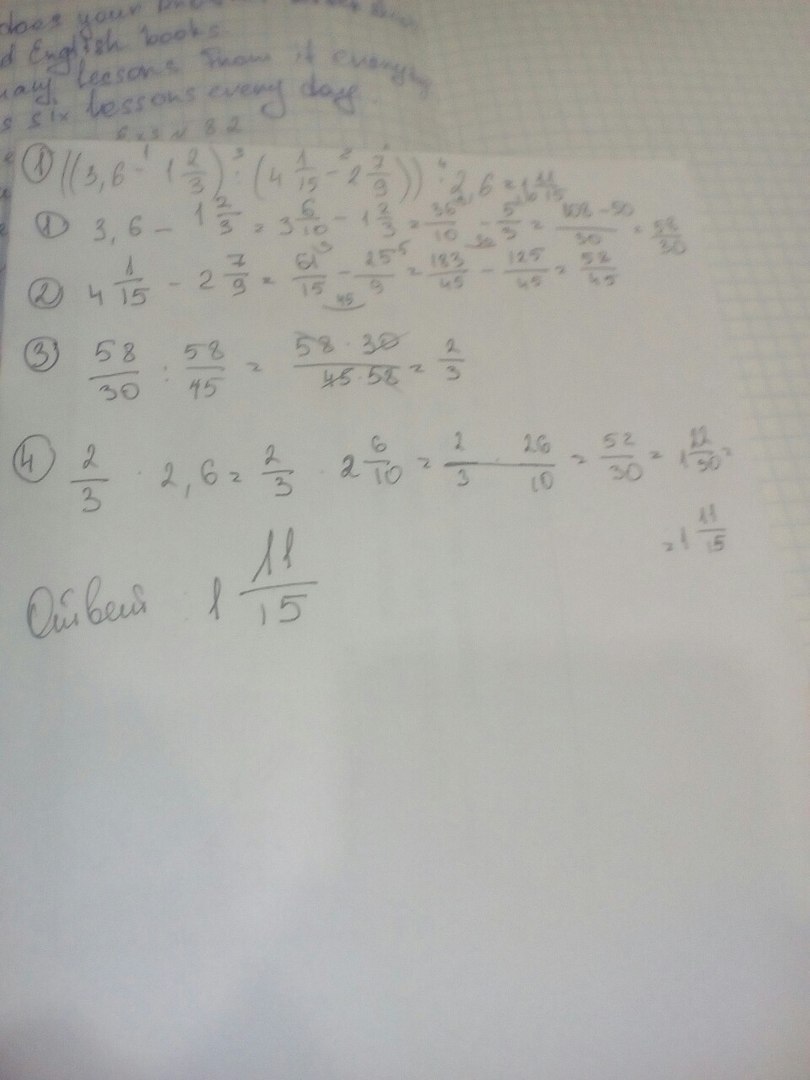 does your
d English books.
many lessons
s six lessons every day.
① ((3,6 - 1 2/3) : (4 1/15 - 2 7/9)) · 2,6 = 1 11/15
① 3,6 - 1 2/3 = 3 6/10 - 1 2/3 = 36/10 - 5/3 = 108-50/30 = 58/30
② 4 1/15 - 2 7/9 = 61/15 - 25/9 = 183/45 - 125/45 = 58/45
③ 58/30 : 58/45 = 58·30/45·58 = 2/3
④ 2/3 · 2,6 = 2/3 · 2 6/10 = 2/3 · 26/10 = 52/30 = 1 22/30 =
= 1 11/15
Ответ : 1 11/15